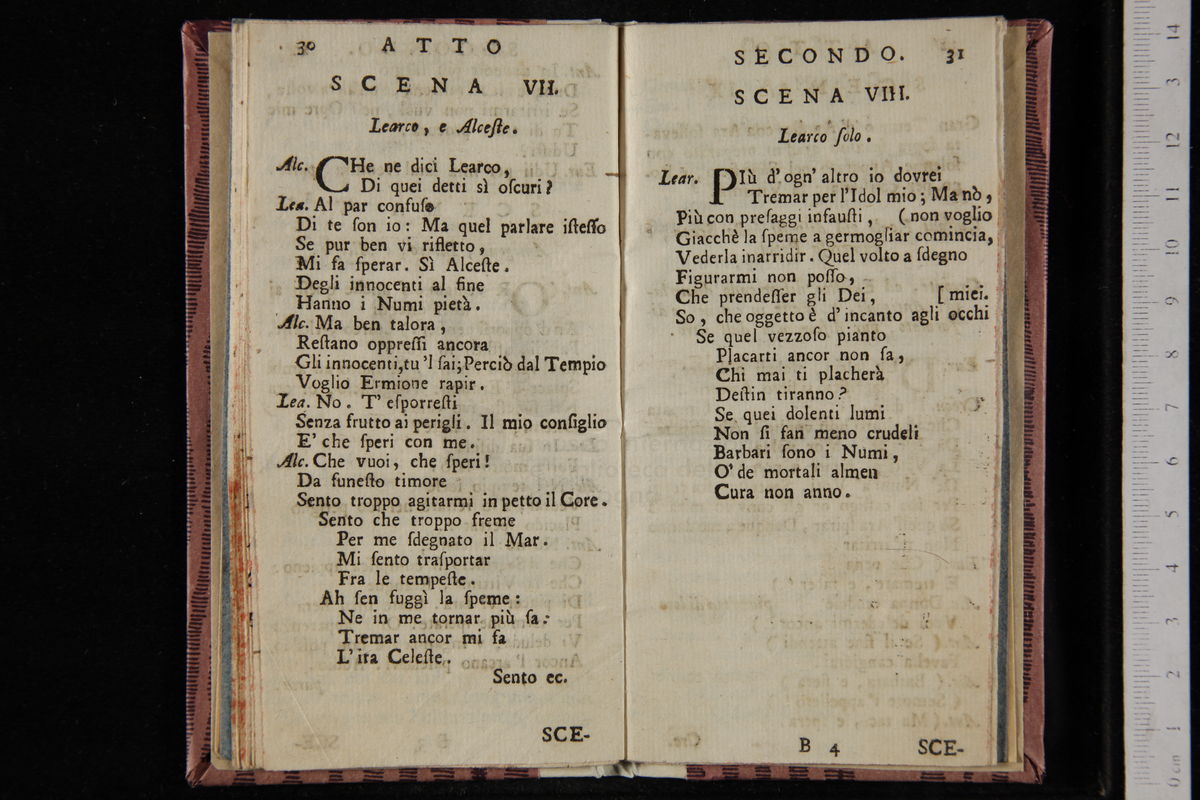 30 ATTO
SCENA VII.
Learco, e Alceſte.
Alc. CHe ne dici Learco,
Di quei detti sì oſcuri?
Lea. Al par confuſo
Di te ſon io: Ma quel parlare iſteſſo
Se pur ben vi rifletto,
Mi fa ſperar. Sì Alceſte.
Degli innocenti al fine
Hanno i Numi pietà.
Alc. Ma ben talora,
Reſtano oppreſſi ancora
Gli innocenti, tu 'l ſai; Perciò dal Tempio
Voglio Ermione rapir.
Lea. No. T' eſporreſti
Senza frutto ai perigli. Il mio conſiglio
E' che ſperi con me.
Alc. Che vuoi, che ſperi!
Da funeſto timore
Sento troppo agitarmi in petto il Core.
Sento che troppo freme
Per me ſdegnato il Mar.
Mi ſento traſportar
Fra le tempeſte.
Ah ſen fuggì la ſpeme:
Ne in me tornar più ſa:
Tremar ancor mi fa
L' ira Celeſte.
Sento ec.
SCE-
SECONDO. 31
SCENA VIII.
Learco ſolo.
Lear. PIù d' ogn' altro io dovrei
Tremar per l'Idol mio; Ma nò,
Più con preſaggi infauſti, (non voglio
Giacchè la ſpeme a germogliar comincia,
Vederla inarridir. Quel volto a ſdegno
Figurarmi non poſſo,
Che prendeſſer gli Dei, [miei.
So, che oggetto è d' incanto agli occhi
Se quel vezzoſo pianto
Placarti ancor non ſa,
Chi mai ti placherà
Deſtin tiranno?
Se quei dolenti lumi
Non ſi fan meno crudeli
Barbari ſono i Numi,
O' de mortali almen
Cura non anno.
B 4 SCE-
14
13
12
11
10
9
8
7
6
5
4
3
2
1
0 cm